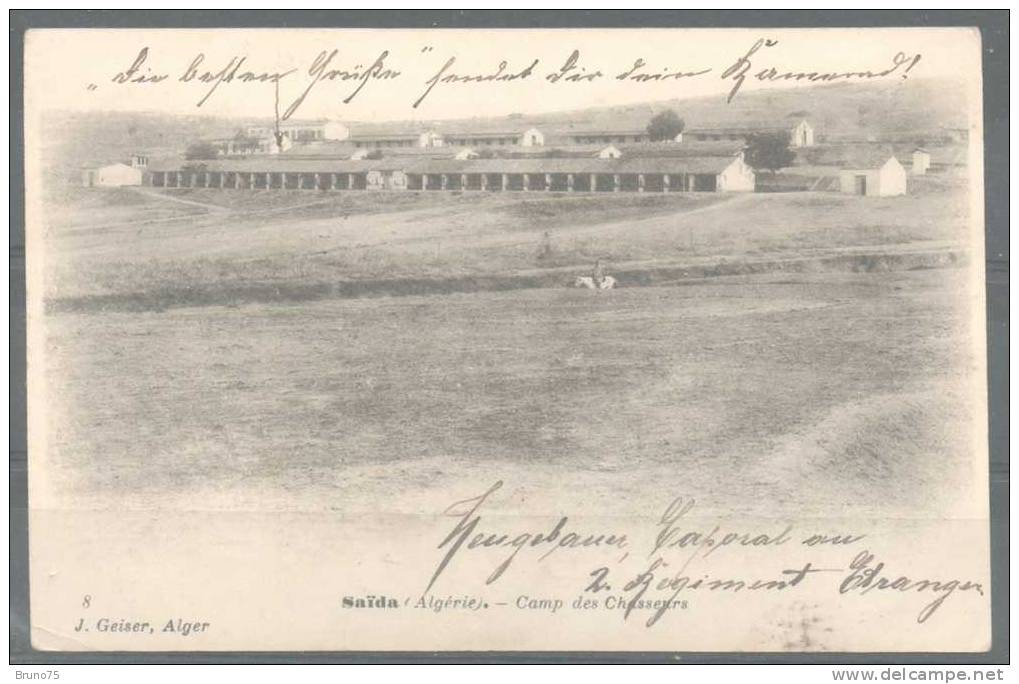 „Die besten Grüße" sendet Dir dein Kamerad!
Neugebauer, Caporal au
2. Regiment Etranger
8 Saïda (Algérie). – Camp des Chasseurs
J. Geiser, Alger
Bruno75
http://www.delcampe.net